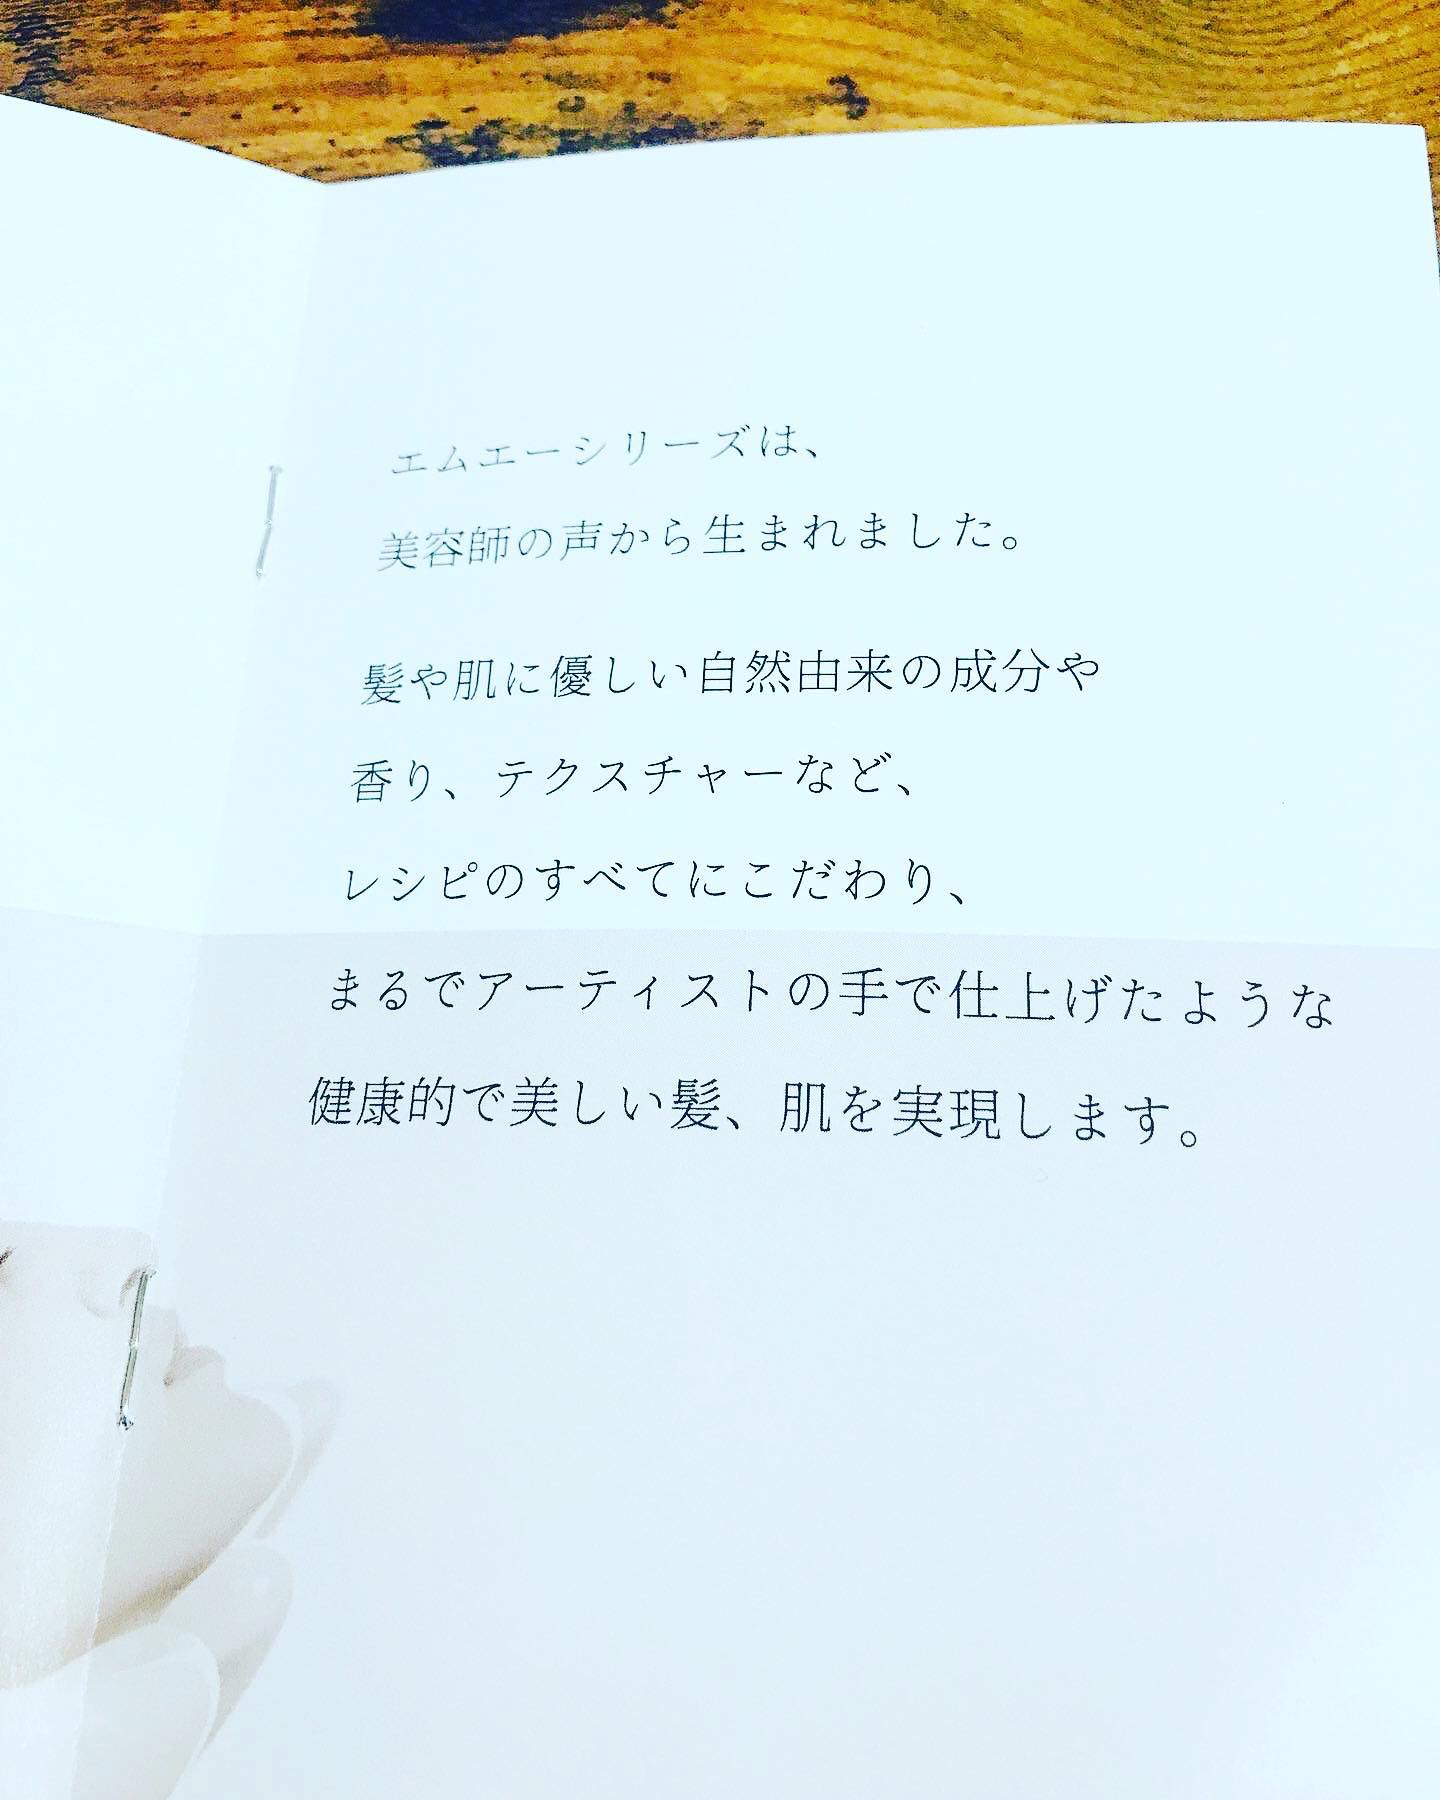 エムエーシリーズは、
美容師の声から生まれました。
髪や肌に優しい自然由来の成分や
香り、テクスチャーなど、
レシピのすべてにこだわり、
まるでアーティストの手で仕上げたような
健康的で美しい髪、肌を実現します。